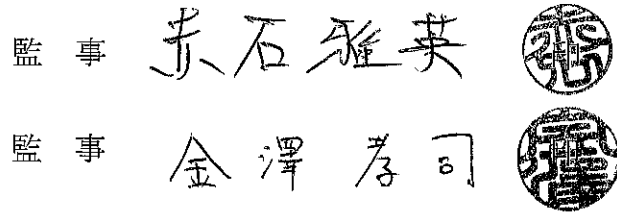 監事 赤石雅英
監事 金澤孝司